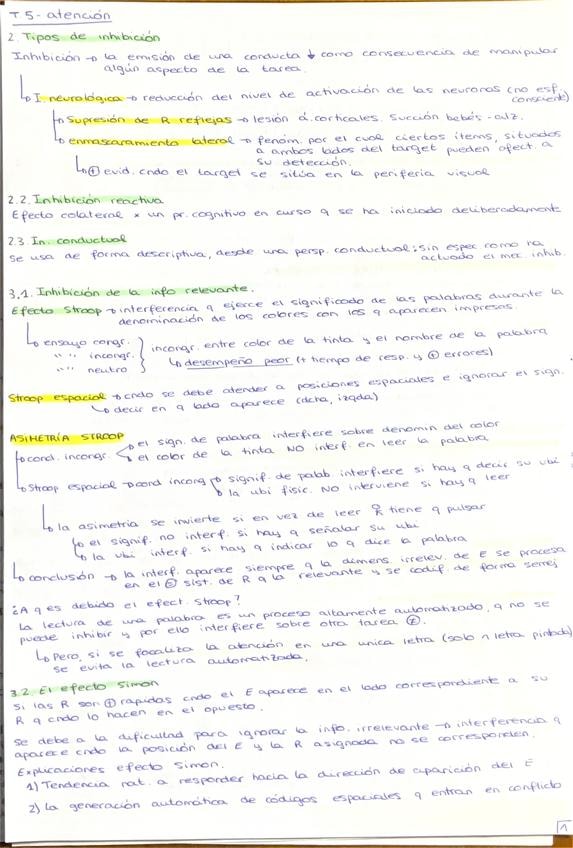 T5 - atención
2. Tipos de inhibición
Inhibición → la emisión de una conducta ↓ como consecuencia de manipular
algún aspecto de la tarea.
↳ I. neurológica → reducción del nivel de activación de las neuronas (no esf.
consciente)
↳ Supresión de R reflejas → lesión á. corticales. Succión bebés - alz.
↳ enmascaramiento lateral → fenóm. por el cual ciertos ítems, situados
a ambos lados del target pueden afect. a
su detección.
↳ ⊕ evid. cndo el target se sitúa en la periferia visual
2.2. Inhibición reactiva
Efecto colateral x un pr. cognitivo en curso q se ha iniciado deliberadamente
2.3. In. conductual
Se usa de forma descriptiva, desde una persp. conductual: sin espec como ha
actuado el mec. inhib.
3.1. Inhibición de la info relevante.
Efecto Stroop → interferencia q ejerce el significado de las palabras durante la
denominación de los colores con los q aparecen impresos.
↳ ensayo congr. } incongr. entre color de la tinta y el nombre de la palabra
" " incongr. } ↳ desempeño peor (+ tiempo de resp. y ⊕ errores)
" " neutro }
Stroop espacial → cndo se debe atender a posiciones espaciales e ignorar el sign.
↳ decir en q lado aparece (dcha, izqda)
ASIMETRÍA STROOP
↳ cond. incongr. → el sign. de palabra interfiere sobre denomin del color
→ el color de la tinta NO interf. en leer la palabra
↳ Stroop espacial → cond incong → signif. de palab. interfiere si hay q decir su ubi
↳ la ubi físic. NO interviene si hay q leer
↳ la asimetría se invierte si en vez de leer tiene q pulsar
↳ el signif. no interf. si hay q señalar su ubi
↳ la ubi interf. si hay q indicar lo q dice la palabra
↳ conclusión → la interf. aparece siempre q la dimens. irrelev. de E se procesa
en el sist. de R q la relevante y se codif. de forma semej
¿A q es debido el efect. Stroop?
La lectura de una palabra es un proceso altamente automatizado, q no se
puede inhibir y por ello interfiere sobre otra tarea
↳ Pero, si se focaliza la atención en una única letra (solo 1 letra pintada)
se evita la lectura automatizada.
3.2. El efecto Simon
Si las R son ⊕ rápidas cndo el E aparece en el lado correspondiente a su
R q cndo lo hacen en el opuesto.
Se debe a la dificultad para ignorar la info. irrelevante → interferencia q
aparece cndo la posición del E y la R asignada no se corresponden.
Explicaciones efecto Simon.
1) Tendencia nat. a responder hacia la dirección de aparición del E
2) La generación automática de códigos espaciales q entran en conflicto
1